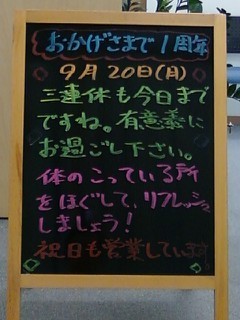 おかげさまで1周年
9月20日(月)
三連休も今日まで
ですね。有意義に
お過ごし下さい。
体のこっている所
をほぐして、リフレッシュ
しましょう!
祝日も営業しています